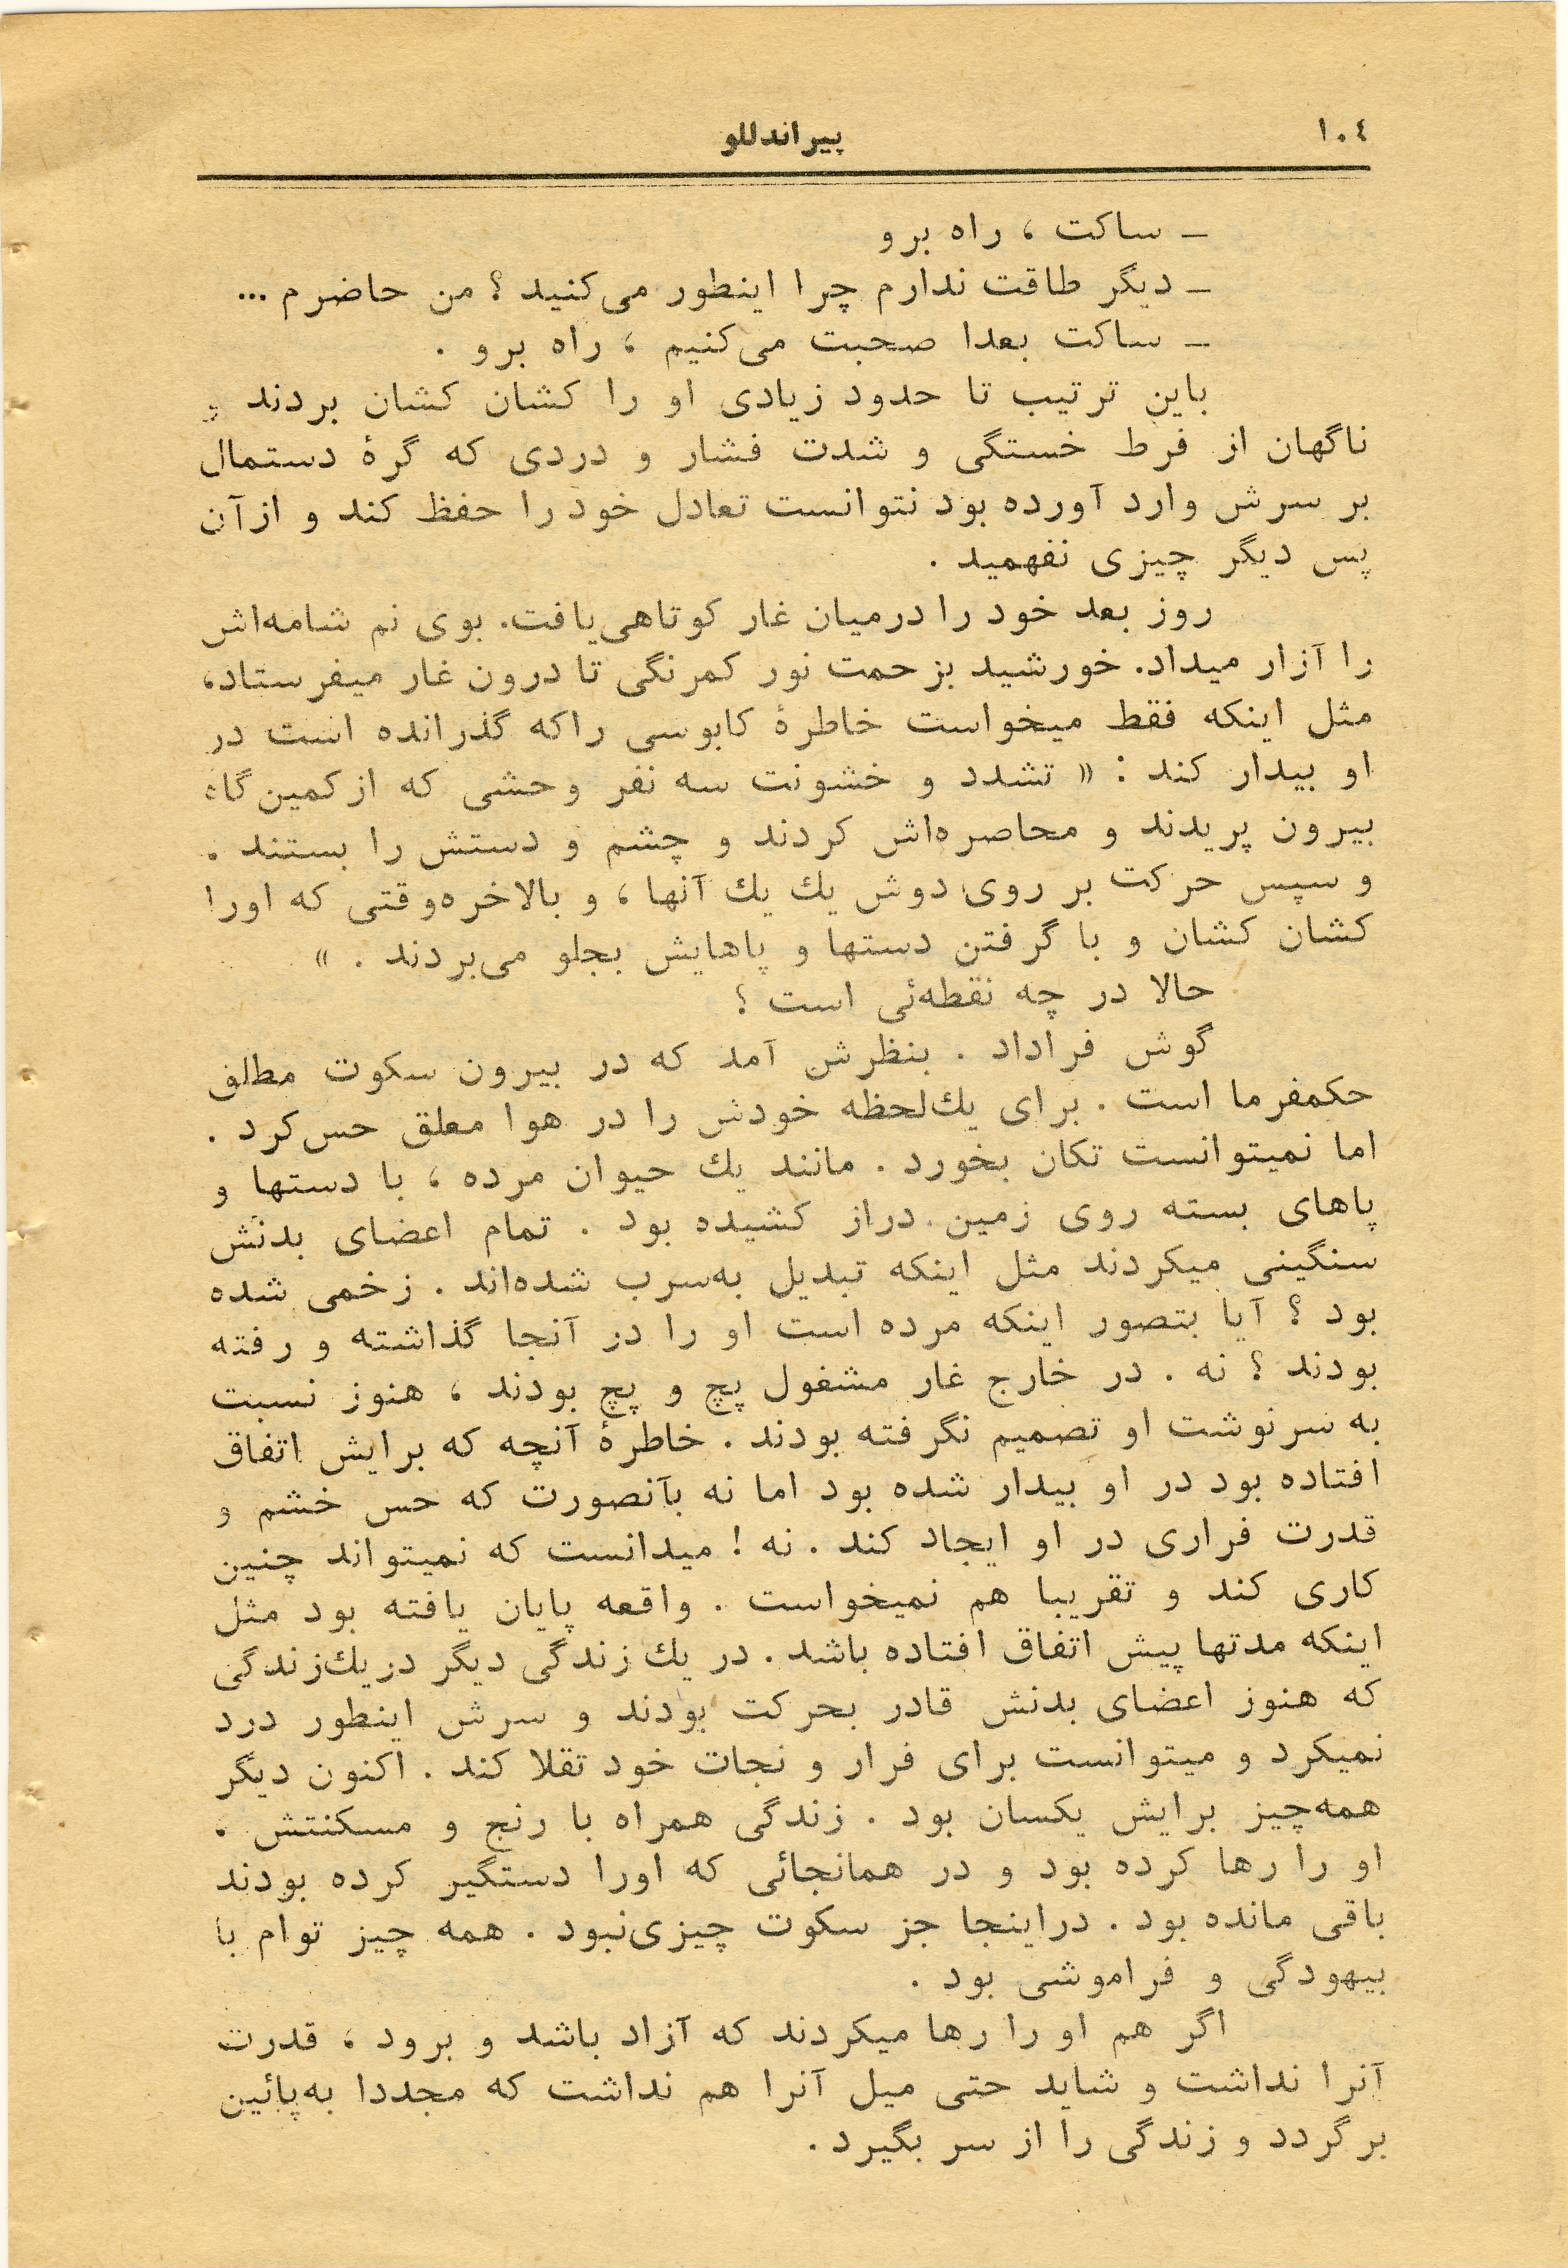 ۱۰٤
پیراندللو
– ساکت ، راه برو
– دیگر طاقت ندارم چرا اینطور می‌کنید ؟ من حاضرم ...
– ساکت بعدا صحبت می‌کنیم ، راه برو .
باین ترتیب تا حدود زیادی او را کشان کشان بردند .
ناگهان از فرط خستگی و شدت فشار و دردی که گرهٔ دستمال
بر سرش وارد آورده بود نتوانست تعادل خود را حفظ کند و از آن
پس دیگر چیزی نفهمید .
روز بعد خود را درمیان غار کوتاهی‌یافت. بوی نم شامه‌اش
را آزار میداد. خورشید بزحمت نور کمرنگی تا درون غار میفرستاد،
مثل اینکه فقط میخواست خاطرهٔ کابوسی راکه گذرانده است در
او بیدار کند : « تشدد و خشونت سه نفر وحشی که از کمین‌گاه
بیرون پریدند و محاصره‌اش کردند و چشم و دستش را بستند .
و سپس حرکت بر روی دوش یك یك آنها ، و بالاخره‌وقتی که اورا
کشان کشان و با گرفتن دستها و پاهایش بجلو می‌بردند . »
حالا در چه نقطه‌ئی است ؟
گوش فراداد . بنظرش آمد که در بیرون سکوت مطلق
حکمفرما است . برای یك‌لحظه خودش را در هوا معلق حس‌کرد .
اما نمیتوانست تکان بخورد . مانند یك حیوان مرده ، با دستها و
پاهای بسته روی زمین دراز کشیده بود . تمام اعضای بدنش
سنگینی میکردند مثل اینکه تبدیل به‌سرب شده‌اند . زخمی شده
بود ؟ آیا بتصور اینکه مرده است او را در آنجا گذاشته و رفته
بودند ؟ نه . در خارج غار مشغول پچ و پچ بودند ، هنوز نسبت
به سرنوشت او تصمیم نگرفته بودند . خاطرهٔ آنچه که برایش اتفاق
افتاده بود در او بیدار شده بود اما نه بآنصورت که حس خشم و
قدرت فراری در او ایجاد کند . نه ! میدانست که نمیتواند چنین
کاری کند و تقریبا هم نمیخواست . واقعه پایان یافته بود مثل
اینکه مدتها پیش اتفاق افتاده باشد . در یك زندگی دیگر در یك‌زندگی
که هنوز اعضای بدنش قادر بحرکت بودند و سرش اینطور درد
نمیکرد و میتوانست برای فرار و نجات خود تقلا کند . اکنون دیگر
همه‌چیز برایش یکسان بود . زندگی همراه با رنج و مسکنتش .
او را رها کرده بود و در همانجائی که اورا دستگیر کرده بودند
باقی مانده بود . دراینجا جز سکوت چیزی‌نبود . همه چیز توام با
بیهودگی و فراموشی بود .
اگر هم او را رها میکردند که آزاد باشد و برود ، قدرت
آنرا نداشت و شاید حتی میل آنرا هم نداشت که مجددا به‌پائین
برگردد و زندگی را از سر بگیرد .